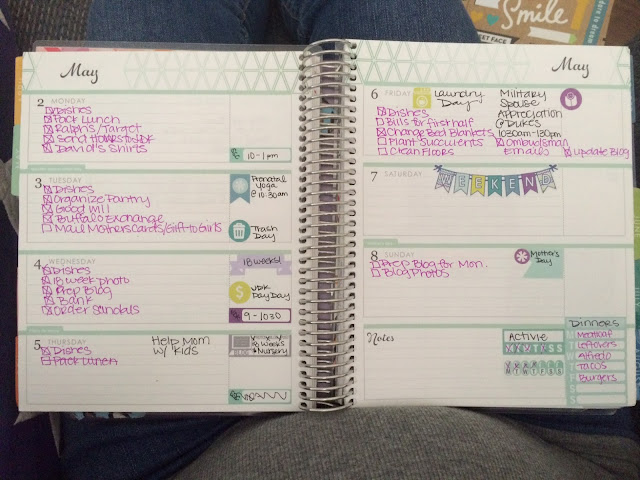 Smile
May
2 MONDAY
Dishes
Pack Lunch
Ralph's/Target
David's Shirts
10-1pm
3 TUESDAY
Dishes
Organize Pantry
Good Will
Buffalo Exchange
Mail Mothers Cards/Gift to Girls
Prenatal
Yoga
@ 10:30am
Trash
Day
4 WEDNESDAY
Dishes
18 week photo
Prep Blog
Bank
Order Sandals
18 weeks!
Pay Day
9-1030
5 THURSDAY
Dishes
Pack Lunch
Help Mom
w/ Kids
BLOG
18 Weeks
Nursery
May
6 FRIDAY
Dishes
Bills for first half
Change Bed Blankets
Plant Succulents
Clean Floors
Laundry
Day
Military
Spouse
Appreciation
@ Duke's
1030am-130pm
Ombudsman
Emails
Update Blog
7 SATURDAY
WEEKEND
8 SUNDAY
Prep Blog for Mon.
Blog Photos
Mother's
Day
Notes
Active
Dinners
Meatloaf
Leftovers
Alfredo
Tacos
Burgers